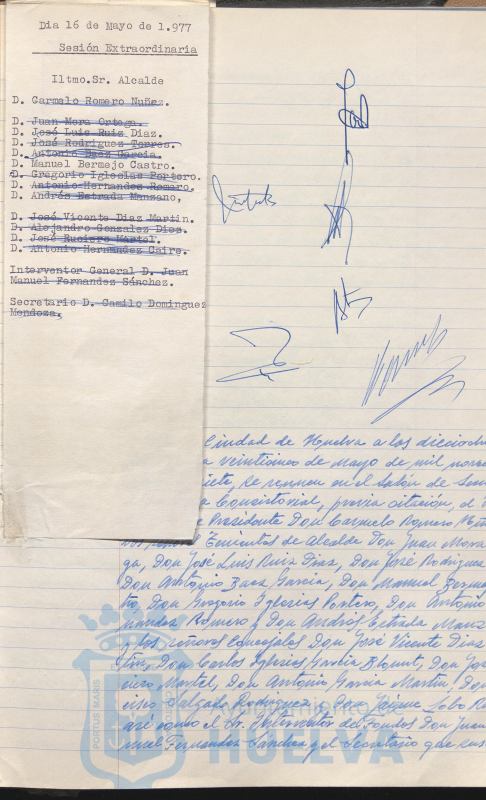 Dia 16 de Mayo de 1.977
Sesión Extraordinaria
Iltmo.Sr. Alcalde
D. Carmelo Romero Nuñez.
D. Juan Mora Ortega.
D. José Luis Ruiz Diaz.
D. José Rodriguez Torres.
D. Antonio Baez Garcia.
D. Manuel Bermejo Castro.
D. Gregorio Iglesias Portero.
D. Antonio Hernandez Romero.
D. Andrés Estrada Manzano,
D. José Vicente Diaz Martin.
D. Alejandro Gonzalez Dios.
D. José Ruciero Martel.
D. Antonio Hernandez Caire.
Interventor General D. Juan
Manuel Fernandez Sánchez.
Secretario D. Camilo Dominguez
Mendoza,
Ciudad de Huelva a las
veinticinco de Mayo de mil
se reunen en el Salón de
Consistorial, previa citación, el
Presidente Don Carmelo Romero
Tenientes de Alcalde Don Juan Mora
ga, Don Jose Luis Ruiz Diaz, Don José Rodriguez
Don Antonio Baez Garcia, Don Manuel
tro, Don Gregorio Iglesias Portero, Don Antonio
nandez Romero y Don Andrés Estrada Manz
y los señores Concejales Don José Vicente Diaz
tin, Don Carlos Iglesias Garcia Don
Martel, Don Antonio Garcia Martin, Don
Salgado Rodriguez, y Don Jaime Lobo
asi como el Sr. Interventor de Fondos Don Juan
nuel Fernandez Sanchez y el Secretario que
PORTUS MARIS
HUELVA